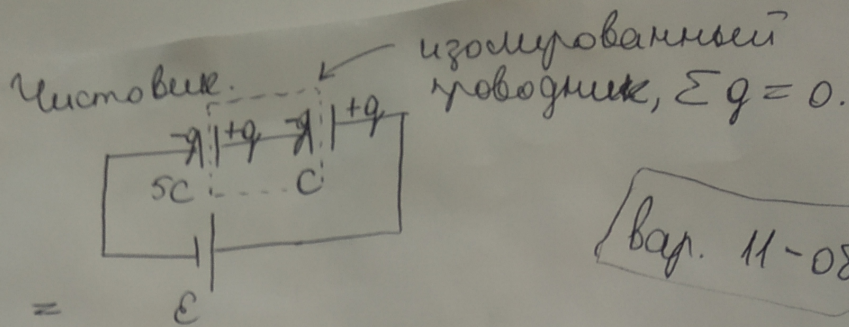 Чистовик.
изолированный
проводник, Σq = 0.
-q +q -q +q
5C C
ε
=
вар. 11-08